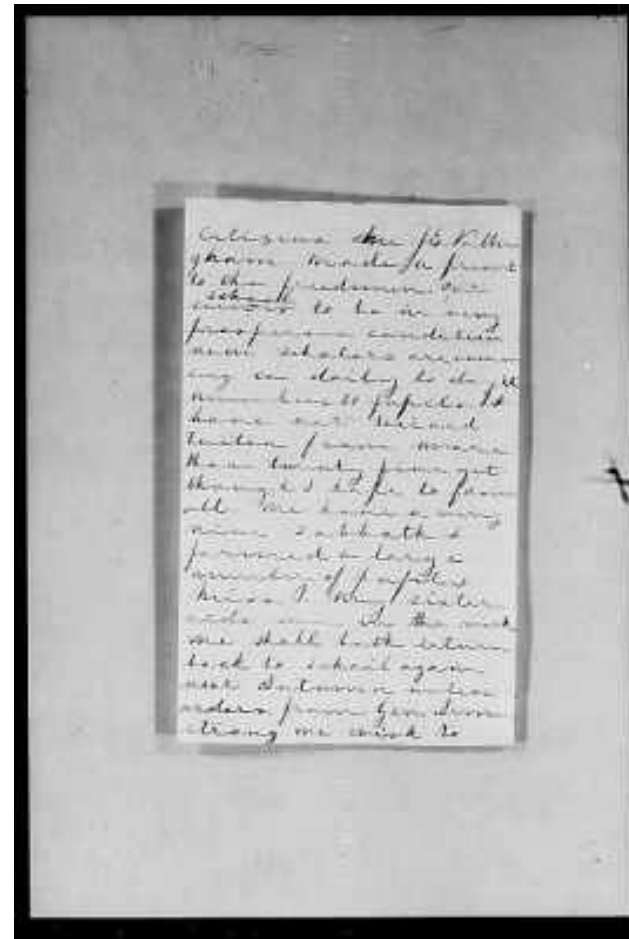 citizens the J E Villi
gham made a point
to the freedmen our
school
seems to be in very
prosperous condition
new scholars are
ing in daily to day
number pupils. I
have not received
tuition from more
than twenty five yet
though I hope to from
all We have a very
nice Sabbath S
formed a large
number of pupils
Miss P. my sister
aids me in the work
we shall both return
back to school again
next Autumn unless
orders from Gen Arm
strong we wish to